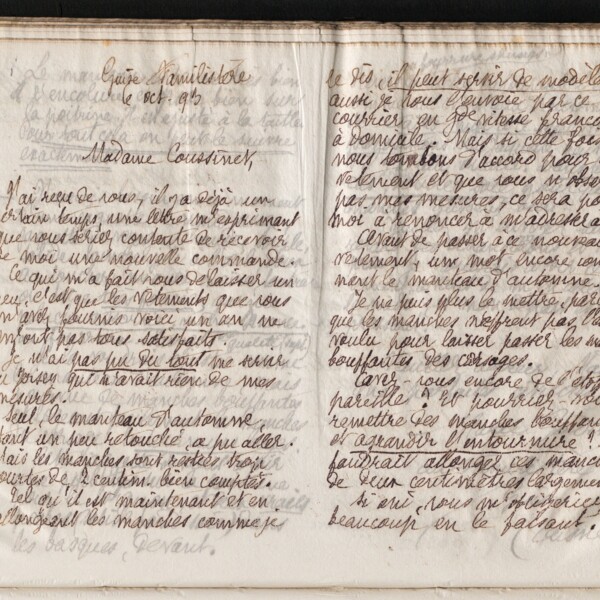 Guise Familistère
6 oct. 93
Madame Coussinet,
J'ai reçu de vous, il y a déjà un
certain temps, une lettre m'exprimant
que vous seriez contente de recevoir
de moi une nouvelle commande.
Ce qui m'a fait vous délaisser un
peu, c'est que les vêtements que vous
m'avez fournis voici un an ne
m'ont pas tous satisfaits.
Je n'ai pas pu du tout me servir
du Jersey qui n'avait rien de mes
mesures.
Seul, le manteau d'automne,
étant un peu retouché, a pu aller.
Mais les manches sont restées trop
courtes de 2 centim. bien comptés.
Tel qu'il est maintenant et en
allongeant les manches comme je
le dis, il peut servir de modèle
aussi je vous l'envoie par ce
courrier, en gde vitesse franco
à domicile. Mais si cette fois
nous tombons d'accord pour
vêtement et que vous n'obser
pas mes mesures, ce sera po
moi à renoncer à m'adresser à
Avant de passer à ce nouveau
vêtement, un mot encore con
nant le manteau d'automne.
Je ne puis plus le mettre, par
que les manches n'offrent pas l'
voulu pour laisser passer les m
bouffantes des corsages.
Avez-vous encore de l'éto
pareille? Et pourriez-vou
remettre des manches bouffan
et agrandir l'entournure?
faudrait allonger ces manc
de deux centimètres largemen
Si oui, vous m'obligeriez
beaucoup en le faisant.
les basques, devant.